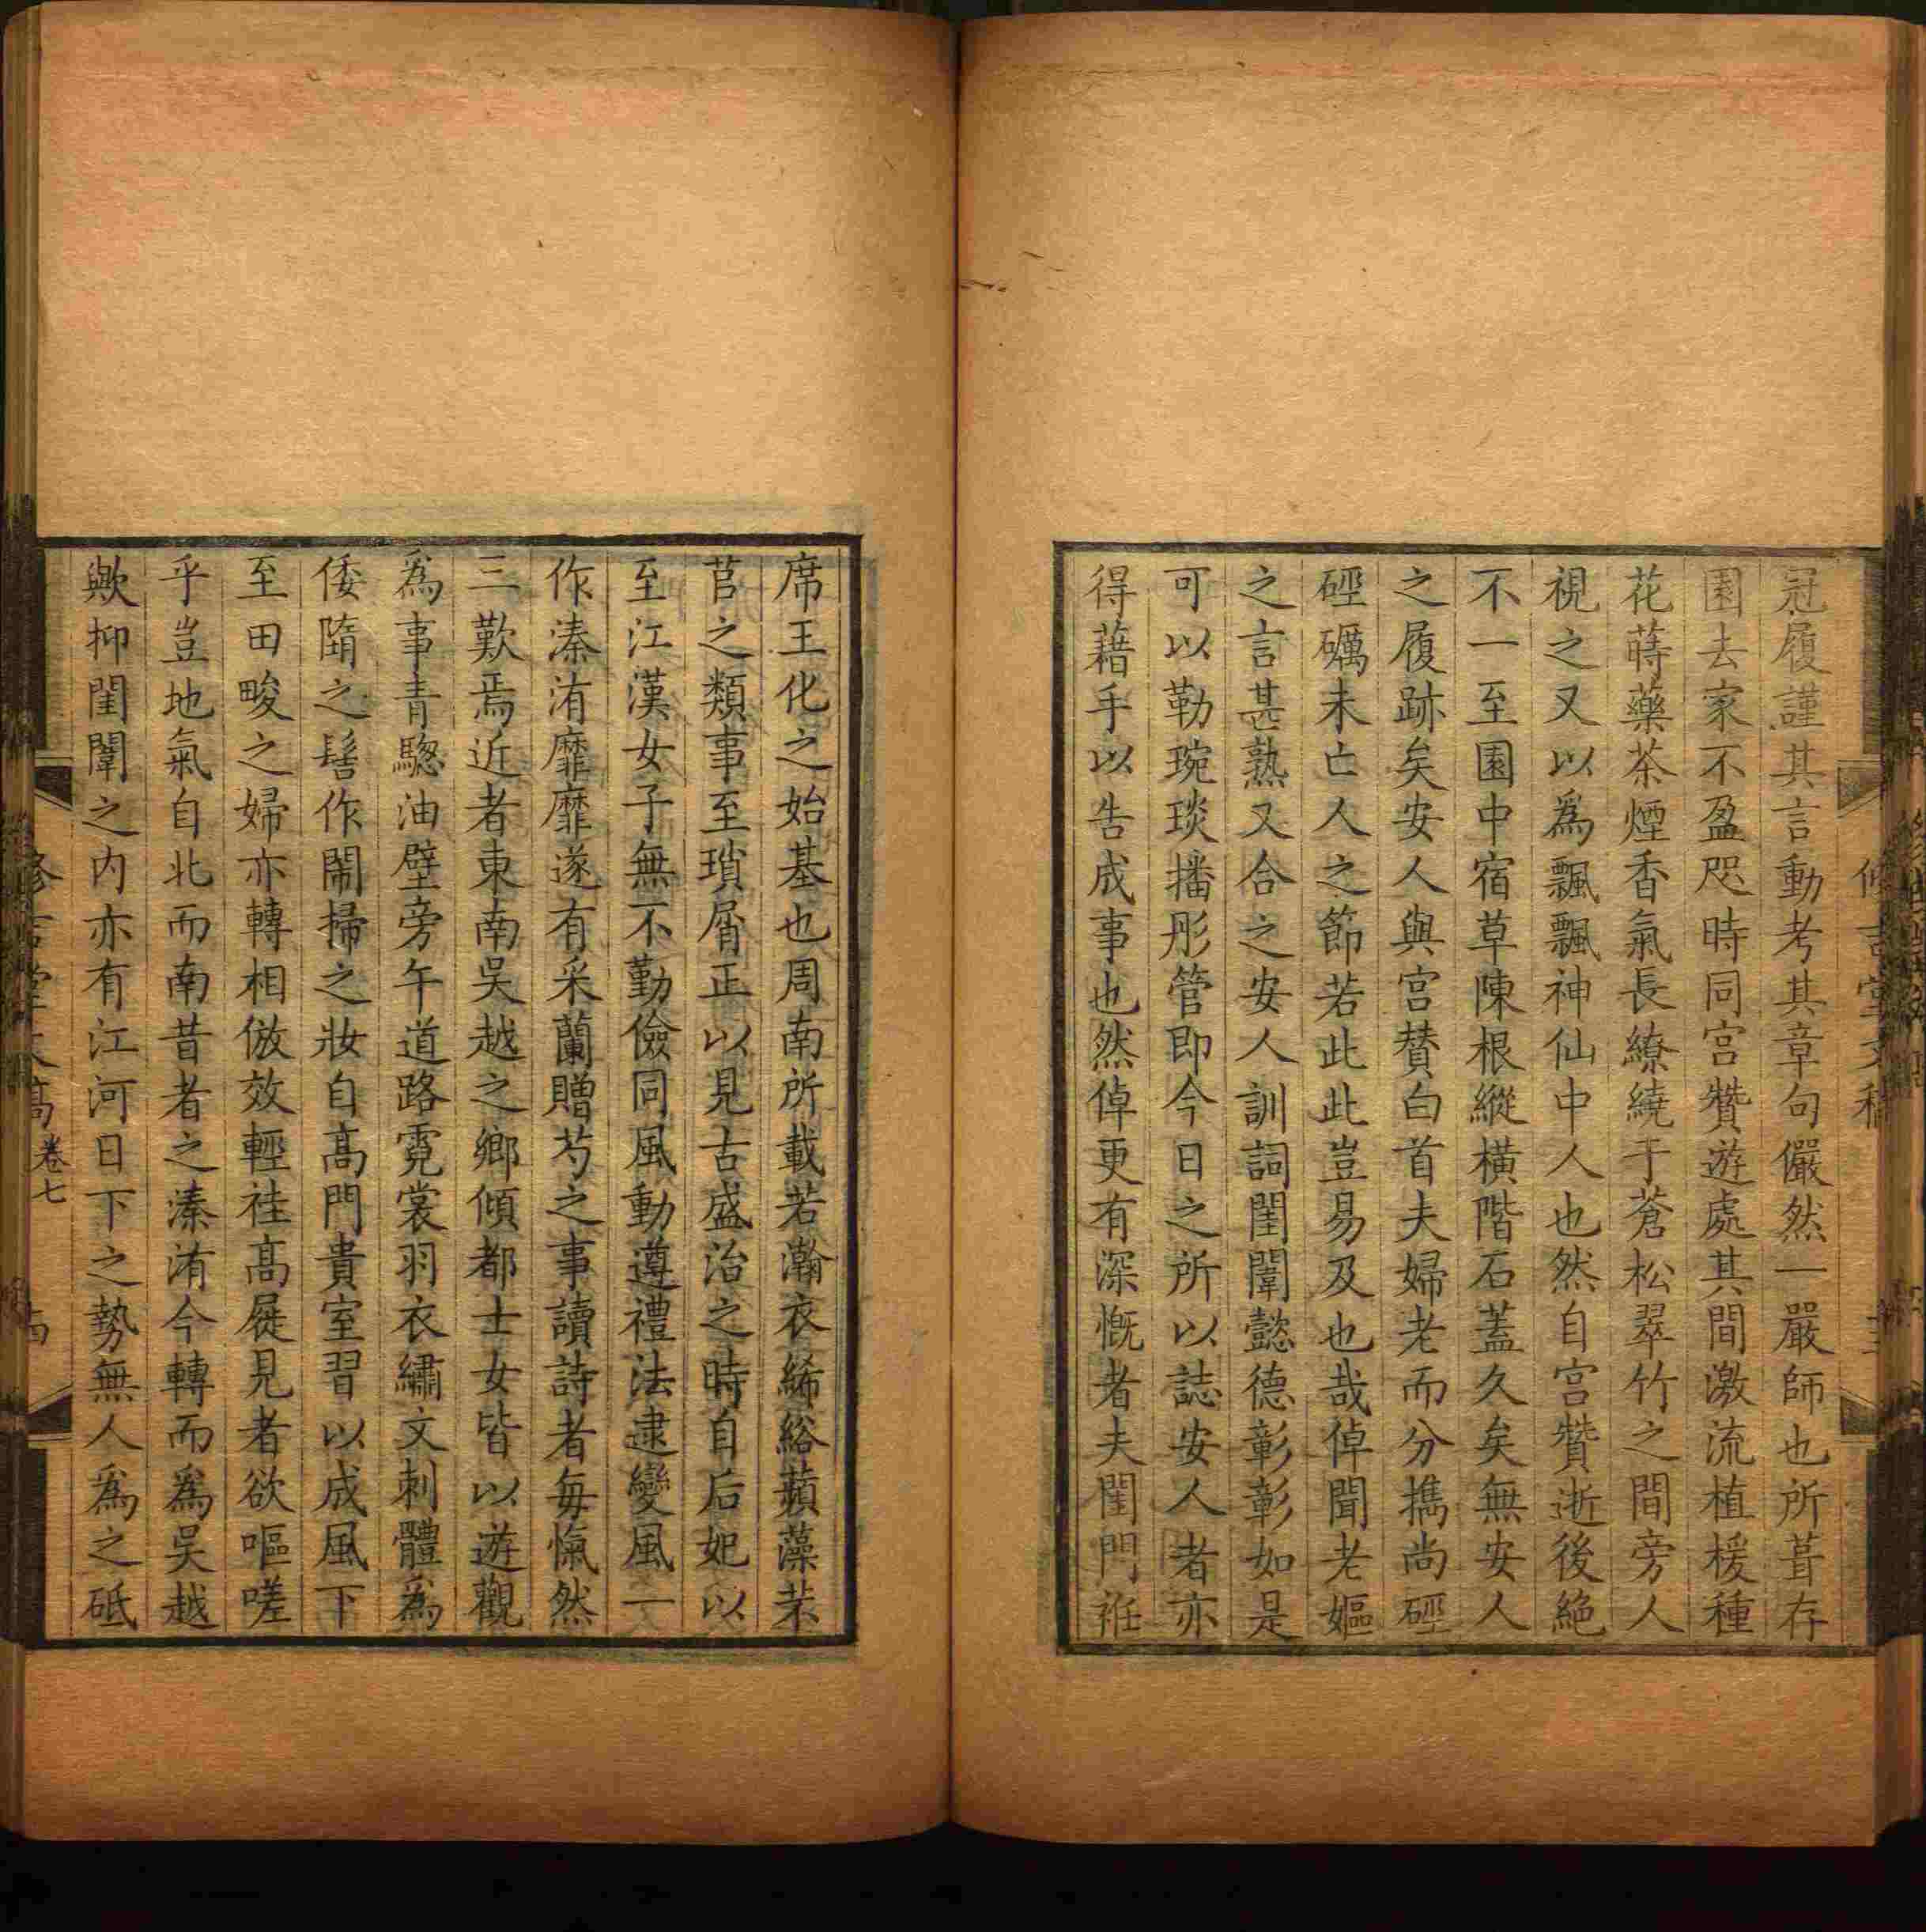 冠履謹其言動考其章句儼然一嚴師也所葺存
園去家不盈咫時同宮贊遊處其間激流植楥種
花蒔藥茶煙香氣長繚繞于蒼松翠竹之間旁人
視之又以為飄飄神仙中人也然自宮贊逝後絶
不一至園中宿草陳根縱橫階石蓋久矣無安人
之履跡矣安人與宮贊白首夫婦老而分擕尚硜
硜礪未亡人之節若此此豈易及也哉倬聞老嫗
之言甚熟又合之安人訓詞閨闈懿德彰彰如是
可以勒琬琰播彤管即今日之所以誌安人者亦
得藉手以告成事也然倬更有深慨者夫閨門袵
席王化之始基也周南所載若瀚衣絺綌蘋藻芣
苢之類事至瑣屑正以見古盛治之時自后妃以
至江漢女子無不勤儉同風動遵禮法逮變風一
作溱洧靡靡遂有采蘭贈芍之事讀詩者每愾然
三歎焉近者東南吳越之鄉傾都士女皆以遊觀
為事青驄油壁旁午道路霓裳羽衣繡文刺體為
倭隋之髻作鬧掃之妝自髙門貴室習以成風下
至田畯之婦亦轉相倣效輕袿髙屣見者欲嘔嗟
乎豈地氣自北而南昔者之溱洧今轉而為吳越
歟抑閨闈之内亦有江河日下之勢無人為之砥
卷七